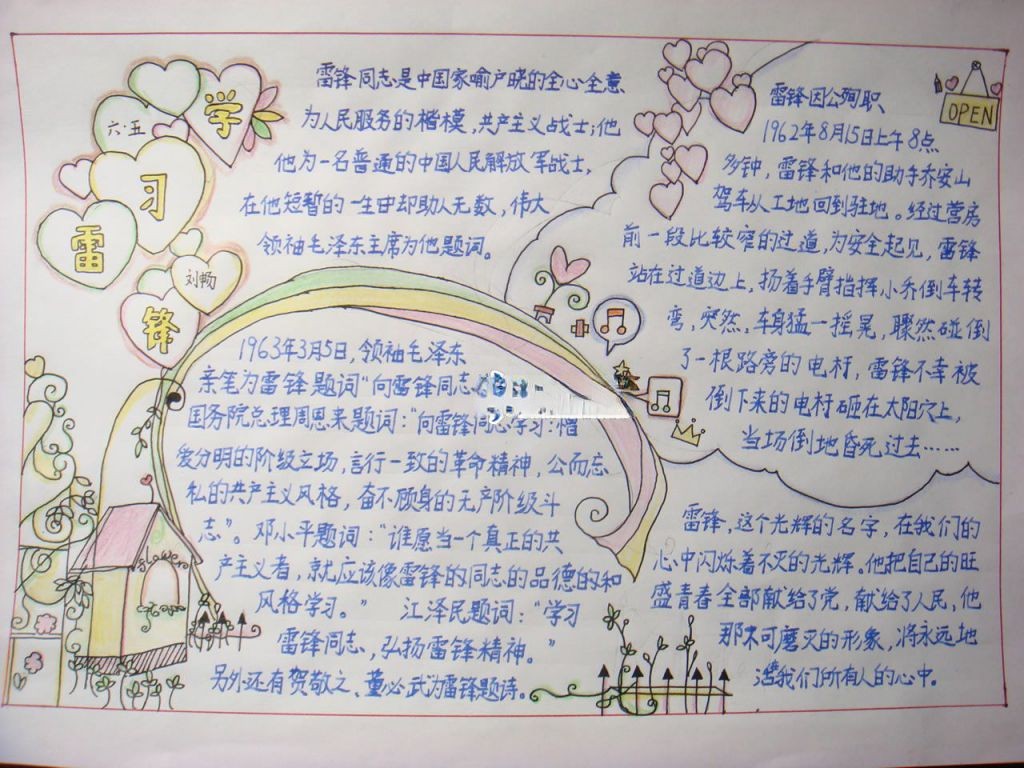 学
六·五
习
雷
刘畅
锋
雷锋同志是中国家喻户晓的全心全意
为人民服务的楷模，共产主义战士；他
他为一名普通的中国人民解放军战士，
在他短暂的一生中却助人无数，伟大
领袖毛泽东主席为他题词。
雷锋因公殉职
1962年8月15日上午8点
多钟，雷锋和他的助手乔安山
驾车从工地回到驻地。经过营房
前一段比较窄的过道，为安全起见，雷锋
站在过道边上，扬着手臂指挥小乔倒车转
弯，突然，车身猛一摇晃，骤然碰倒
了一根路旁的电杆，雷锋不幸被
倒下来的电杆砸在太阳穴上，
当场倒地昏死过去……
OPEN
1963年3月5日，领袖毛泽东
亲笔为雷锋题词“向雷锋同志
国务院总理周恩来题词：“向雷锋同志学习：憎
爱分明的阶级立场，言行一致的革命精神，公而忘
私的共产主义风格，奋不顾身的无产阶级斗
志”。邓小平题词：“谁愿当一个真正的共
产主义者，就应该像雷锋的同志的品德的和
风格学习。” 江泽民题词：“学习
雷锋同志，弘扬雷锋精神。”
另外还有贺敬之、董必武为雷锋题诗。
雷锋，这个光辉的名字，在我们的
心中闪烁着不灭的光辉。他把自己的旺
盛青春全部献给了党，献给了人民，他
那不可磨灭的形象，将永远地
我们所有人的心中。